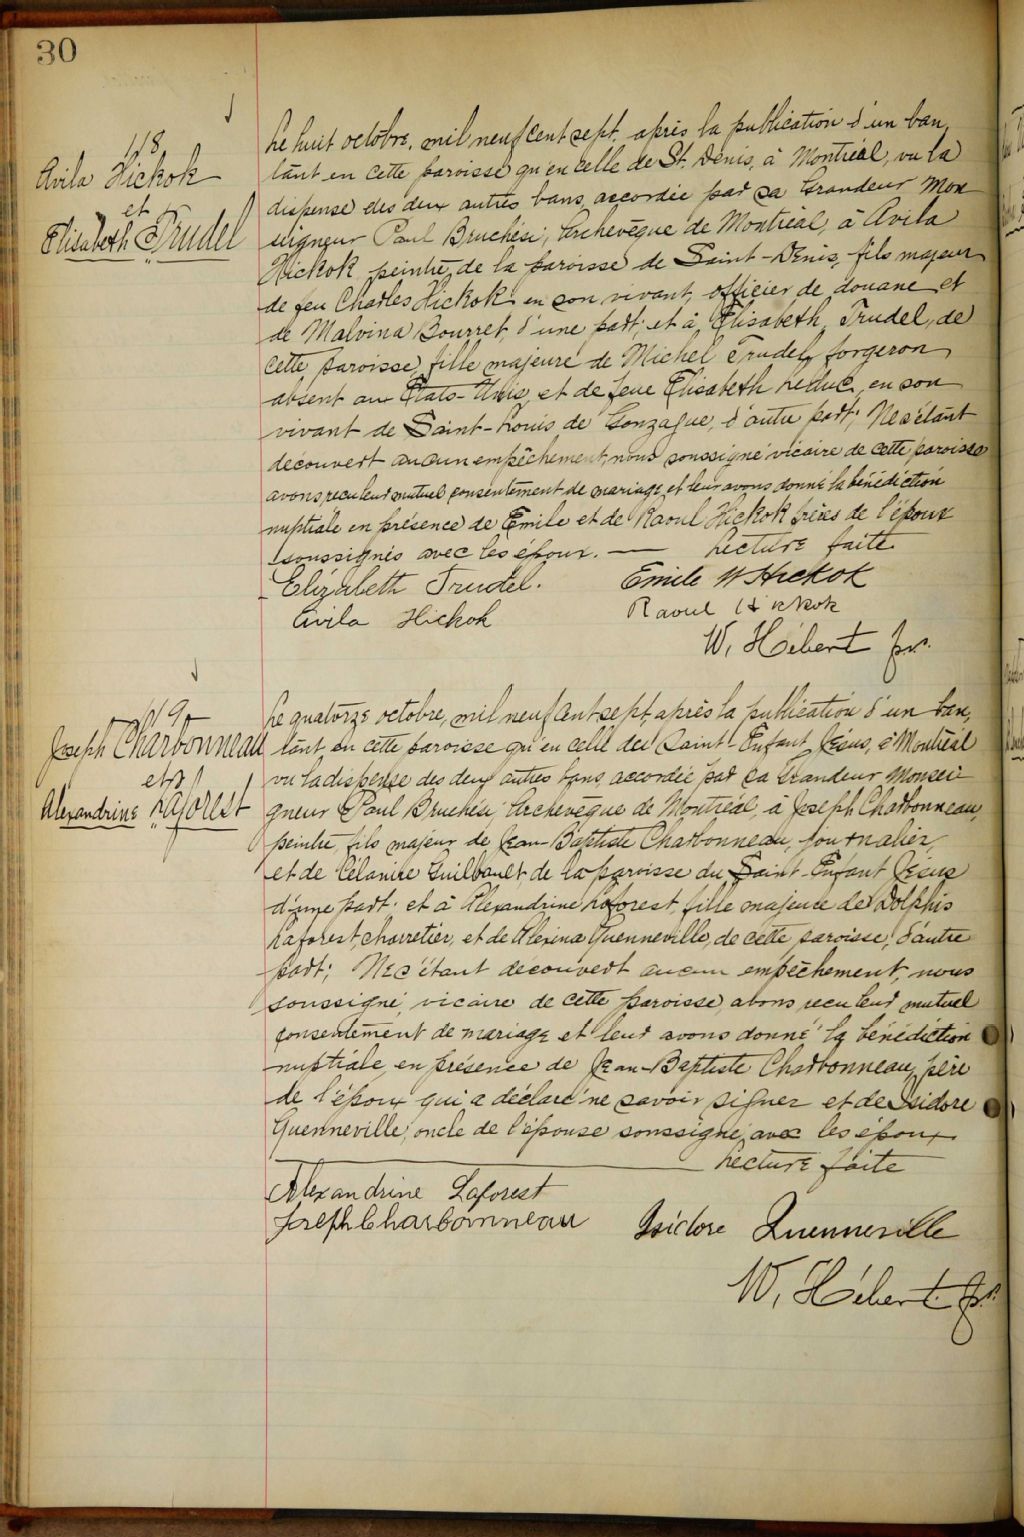 30
118
Avila Hickok
et
Elisabeth Trudel
Le huit octobre, mil neuf cent sept, après la publication d'un ban,
tant en cette paroisse qu'en celle de St. Denis, à Montréal, vu la
dispense des deux autres bans, accordée par sa Grandeur Mon
seigneur Paul Bruchési, Archevêque de Montréal, à Avila
Hickok, peintre, de la paroisse de Saint-Denis, fils majeur
de feu Charles Hickok en son vivant, officier de douane et
de Malvina Bourret, d'une part; et à Elisabeth Trudel, de
cette paroisse, fille majeure de Michel Trudel, forgeron
absent aux Etats-Unis, et de feue Elisabeth Leduc, en son
vivant de Saint-Louis de Gonzague, d'autre part; Ne s'étant
découvert aucun empêchement, nous soussigné vicaire de cette paroisse
avons reçu leur mutuel consentement de mariage et leur avons donné la bénédiction
nuptiale en présence de Emile et de Raoul Hickok frères de l'époux
soussignés avec les époux. — Lecture faite
Elizabeth Trudel. Emile W Hickok
Avila Hickok Raoul Hickok
W. Hébert ptr.
119
Joseph Charbonneau
et
Alexandrine Laforest
Le quatorze octobre, mil neuf cent sept, après la publication d'un ban,
tant en cette paroisse qu'en celle du Saint-Enfant Jésus, à Montréal
vu la dispense des deux autres bans accordée par sa Grandeur Monsei
gneur Paul Bruchési, Archevêque de Montréal, à Joseph Charbonneau,
peintre, fils majeur de Jean-Baptiste Charbonneau, journalier,
et de Célanire Guilbault de la paroisse du Saint-Enfant Jésus
d'une part; et à Alexandrine Laforest, fille majeure de Dolphis
Laforest, charretier, et de Alexina Quenneville, de cette paroisse, d'autre
part; Ne s'étant découvert aucun empêchement, nous
soussigné, vicaire de cette paroisse, avons reçu leur mutuel
consentement de mariage et leur avons donné la bénédiction
nuptiale en présence de Jean-Baptiste Charbonneau, père
de l'époux qui a déclaré ne savoir signer et de Isidore
Quenneville, oncle de l'épouse soussigné avec les époux
Lecture faite
Alexandrine Laforest
Joseph Charbonneau Isidore Quenneville
W. Hébert ptr.